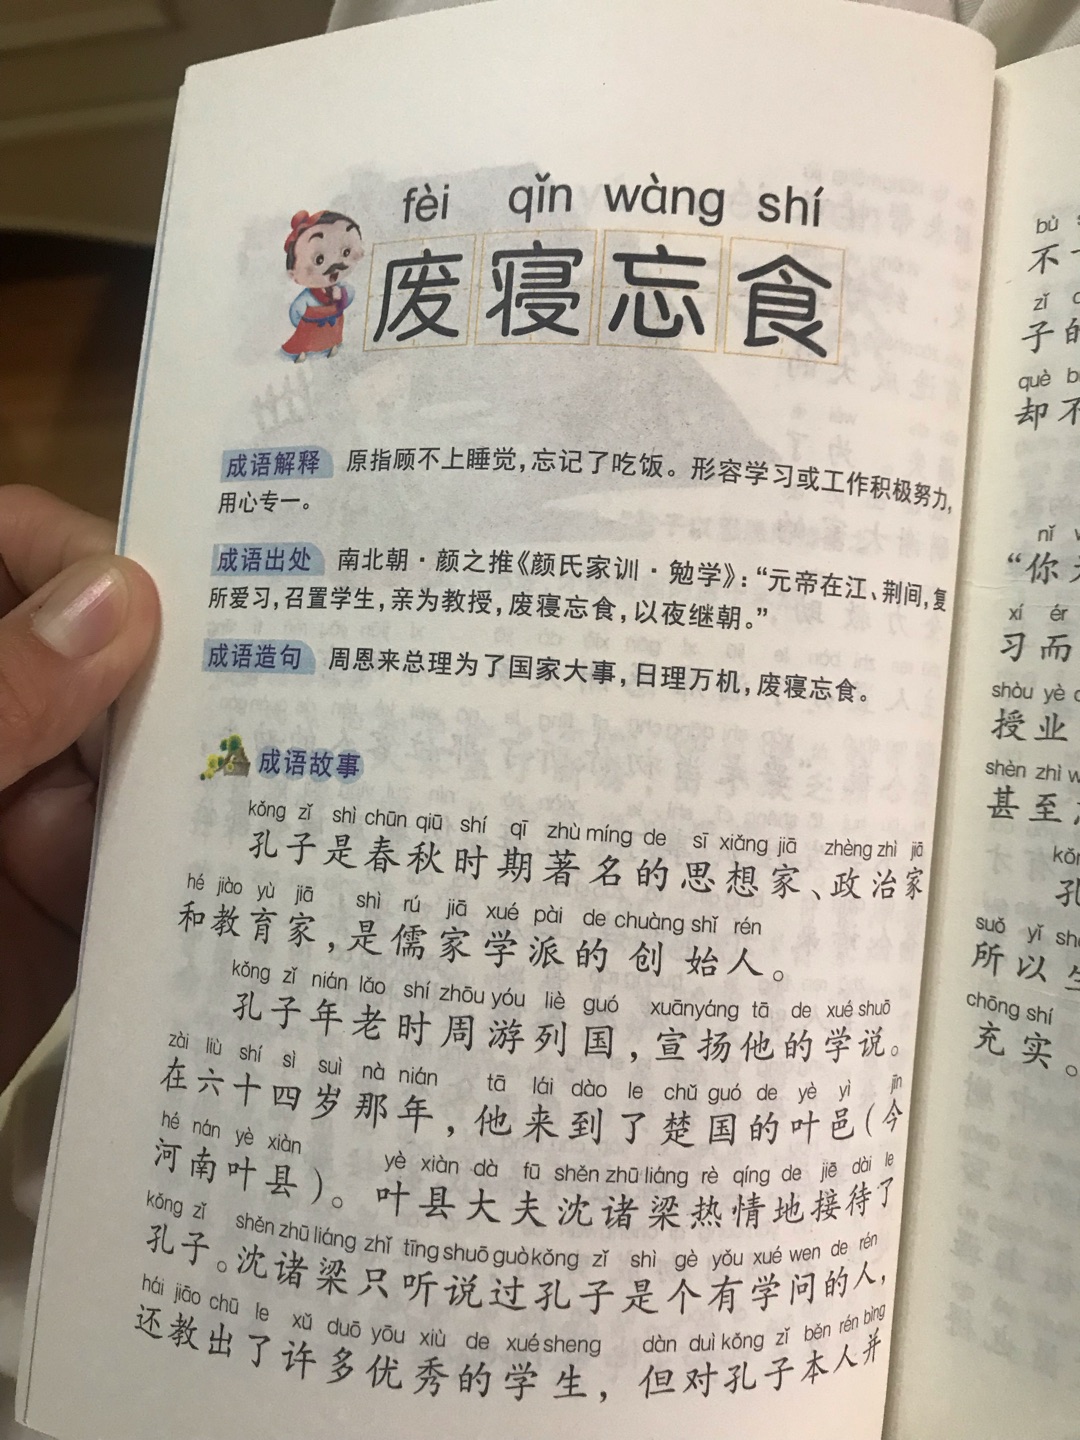 fèi qǐn wàng shí
废寝忘食
成语解释 原指顾不上睡觉，忘记了吃饭。形容学习或工作积极努力，
用心专一。
成语出处 南北朝·颜之推《颜氏家训·勉学》：“元帝在江、荆间，复
所爱习，召置学生，亲为教授，废寝忘食，以夜继朝。”
成语造句 周恩来总理为了国家大事，日理万机，废寝忘食。
成语故事
kǒng zǐ shì chūn qiū shí qī zhù míng de sī xiǎng jiā zhèng zhì jiā
孔子是春秋时期著名的思想家、政治家
hé jiào yù jiā shì rú jiā xué pài de chuàng shǐ rén
和教育家，是儒家学派的创始人。
kǒng zǐ nián lǎo shí zhōu yóu liè guó xuānyáng tā de xué shuō
孔子年老时周游列国，宣扬他的学说。
zài liù shí sì suì nà nián tā lái dào le chǔ guó de yè yì jīn
在六十四岁那年，他来到了楚国的叶邑（今
hé nán yè xiàn yè xiàn dà fū shěn zhū liáng rè qíng de jiē dài le
河南叶县）。叶县大夫沈诸梁热情地接待了
kǒng zǐ shěn zhū liáng zhǐ tīng shuō guò kǒng zǐ shì gè yǒu xué wen de rén
孔子。沈诸梁只听说过孔子是个有学问的人，
hái jiāo chū le xǔ duō yōu xiù de xué sheng dàn duì kǒng zǐ běn rén bìng
还教出了许多优秀的学生，但对孔子本人并
bù
不
zǐ
子的
què
却不
nǐ
“你
xí ér
习而
shòu yè
授业
shèn zhì
甚至
suǒ yǐ
所以
chōng shí
充实。